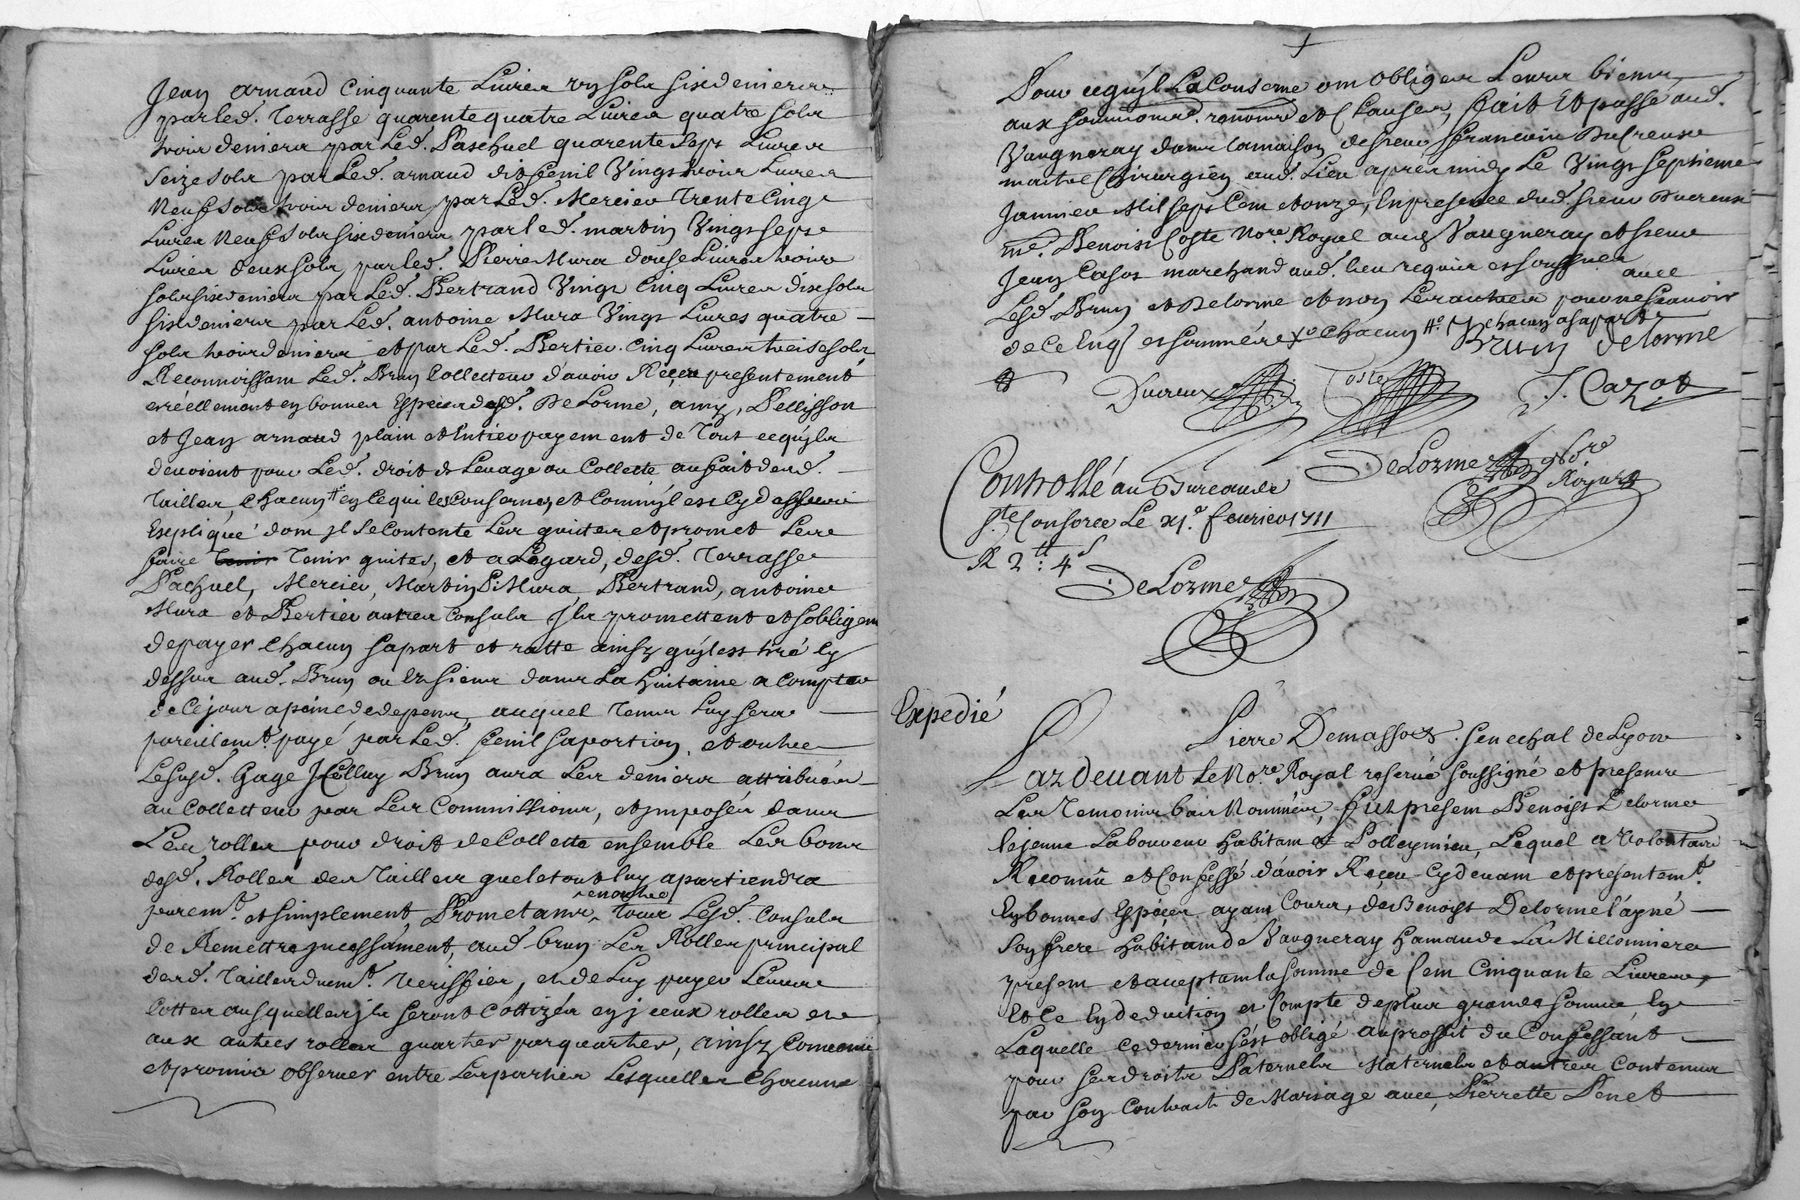 Jean arnaud Cinquante Livres un sols six deniers
par led. Terrasse quarente quatre Livres quatre sols
trois deniers par Led. Paschuel quarente sept Livres
seize sols par Led. arnaud dit fenil Vingt trois Livres
Neuf sols trois deniers par Led. Mercier Trente Cinq
Livres Neuf sols six deniers par led. martin Vingt sept
Livres deux sols par led. Pierre Mura douse Livres trois
sols six deniers par Led. Bertrand Vingt Cinq Livres dix sols
six deniers par Led. antoine Mura Vingt Livres quatre
sols trois deniers et par Led. Bertier Cinq Livres treise sols
Reconnoissant Led. Brun Collecteur d'avoir Reçeu presentement
et réellement en bonnes Especes desd. De Lorme, amy, Pellisson
et Jean arnaud plain et Entier payement de Tout ce qu'jls
devoient pour Led. droit de Levage ou Collecte au fait desd.
Tailles, Chacun en Ce qui les Conserne, et Comm'jl est Cy dessus
Expliqué dont jl se Contente Les quitte et promet Les
faire Tenir quites, et a Légard, desd. Terrasse
Pachuel, Mercier, Martin P. Mura Bertrand, antoine
Mura et Bertier autres Consuls Jls promettent et sobligent
de payer Chacun sa part et ratte ainsy qu'jl est tiré Cy
dessus aud. Brun ou Es siens dans La huitaine a Compter
de Ce jour a peine de depens, auquel Tems Luy sera
pareillemt. payé par Led. fenil sa portion, et outre
Le susd. Gage Jcelluy Brun aura Les deniers attribués
au Collecteur par Les Commissions, et jmposés dans
Les rolles pour droit de Collette ensemble Les bons
desd. Rolles des Tailles que le tout luy apartiendra
puremt. et simplement, Promettant, en outre tous Lesd. Consuls
de Remettre jncessament, aud. brun Les Rolles principal
desd. Tailles duemt. Veriffier, et de Luy payer Leurs
Cottes ausquelles jls seront Cottizés en jceux rolles et
aux autres rolles quartier par quartier, ainsy Convenu
et promis observer entre Les parties Lesquelles Chacune
Pour ce qu'jl La Conserne ont Obliger Leurs biens
aux soumissions. renons. et Clauses, fait Et passé aud.
Vaugneray dans la maison de sieur francois Ducreux
maitre Chirurgien aud. Lieu aprés midy Le Vingt septieme
Janvier Mil sept Cent et onze, En presence dud. sieur Ducreux
me. Benoist Coste Nore. Royal aud. Vaugneray et sieur
Jean Casot marchand aud. lieu requis et soussignes avec
Lesd. Brun et Delorme et non Les autres pour ne sçavoir
de Ce Enq. et sommés Chacun Chacun a sa part
Brun delorme
Ducreux Coste J. Cazot
DeLorme Nore. Royal
Controllé au Bureau de
Ste. Consorce Le XIe. fevrier 1711
R 2 tt : 4 s
DeLorme
Expedié
Pierre Demassoz. Senechal de Lyon
Pardevant Le Nore. Royal reservé soussigné et presens
Les Temoins bas Nommés, fut present Benoist Delorme
le jeune Laboureur habitant a Polleymieu, Lequel a Volontaire
Reconnû et Confessé d'avoir Reçeu Cy devant et presentemt.
En bonnes Especes ayant Cours, de Benoist Delorme l'ayné
son frere habitant de Vaugneray hamau de La Millonniere
present et aceptant la somme de Cent Cinquante Livres,
Et Ce En deduction et Compte de plus grande somme En
Laquelle Ce dernier s'est obligé au proffit du Confessant
pour ses droits Paternels Maternels et autres Contenus
par son Contract de Mariage avec Pierrette Penet